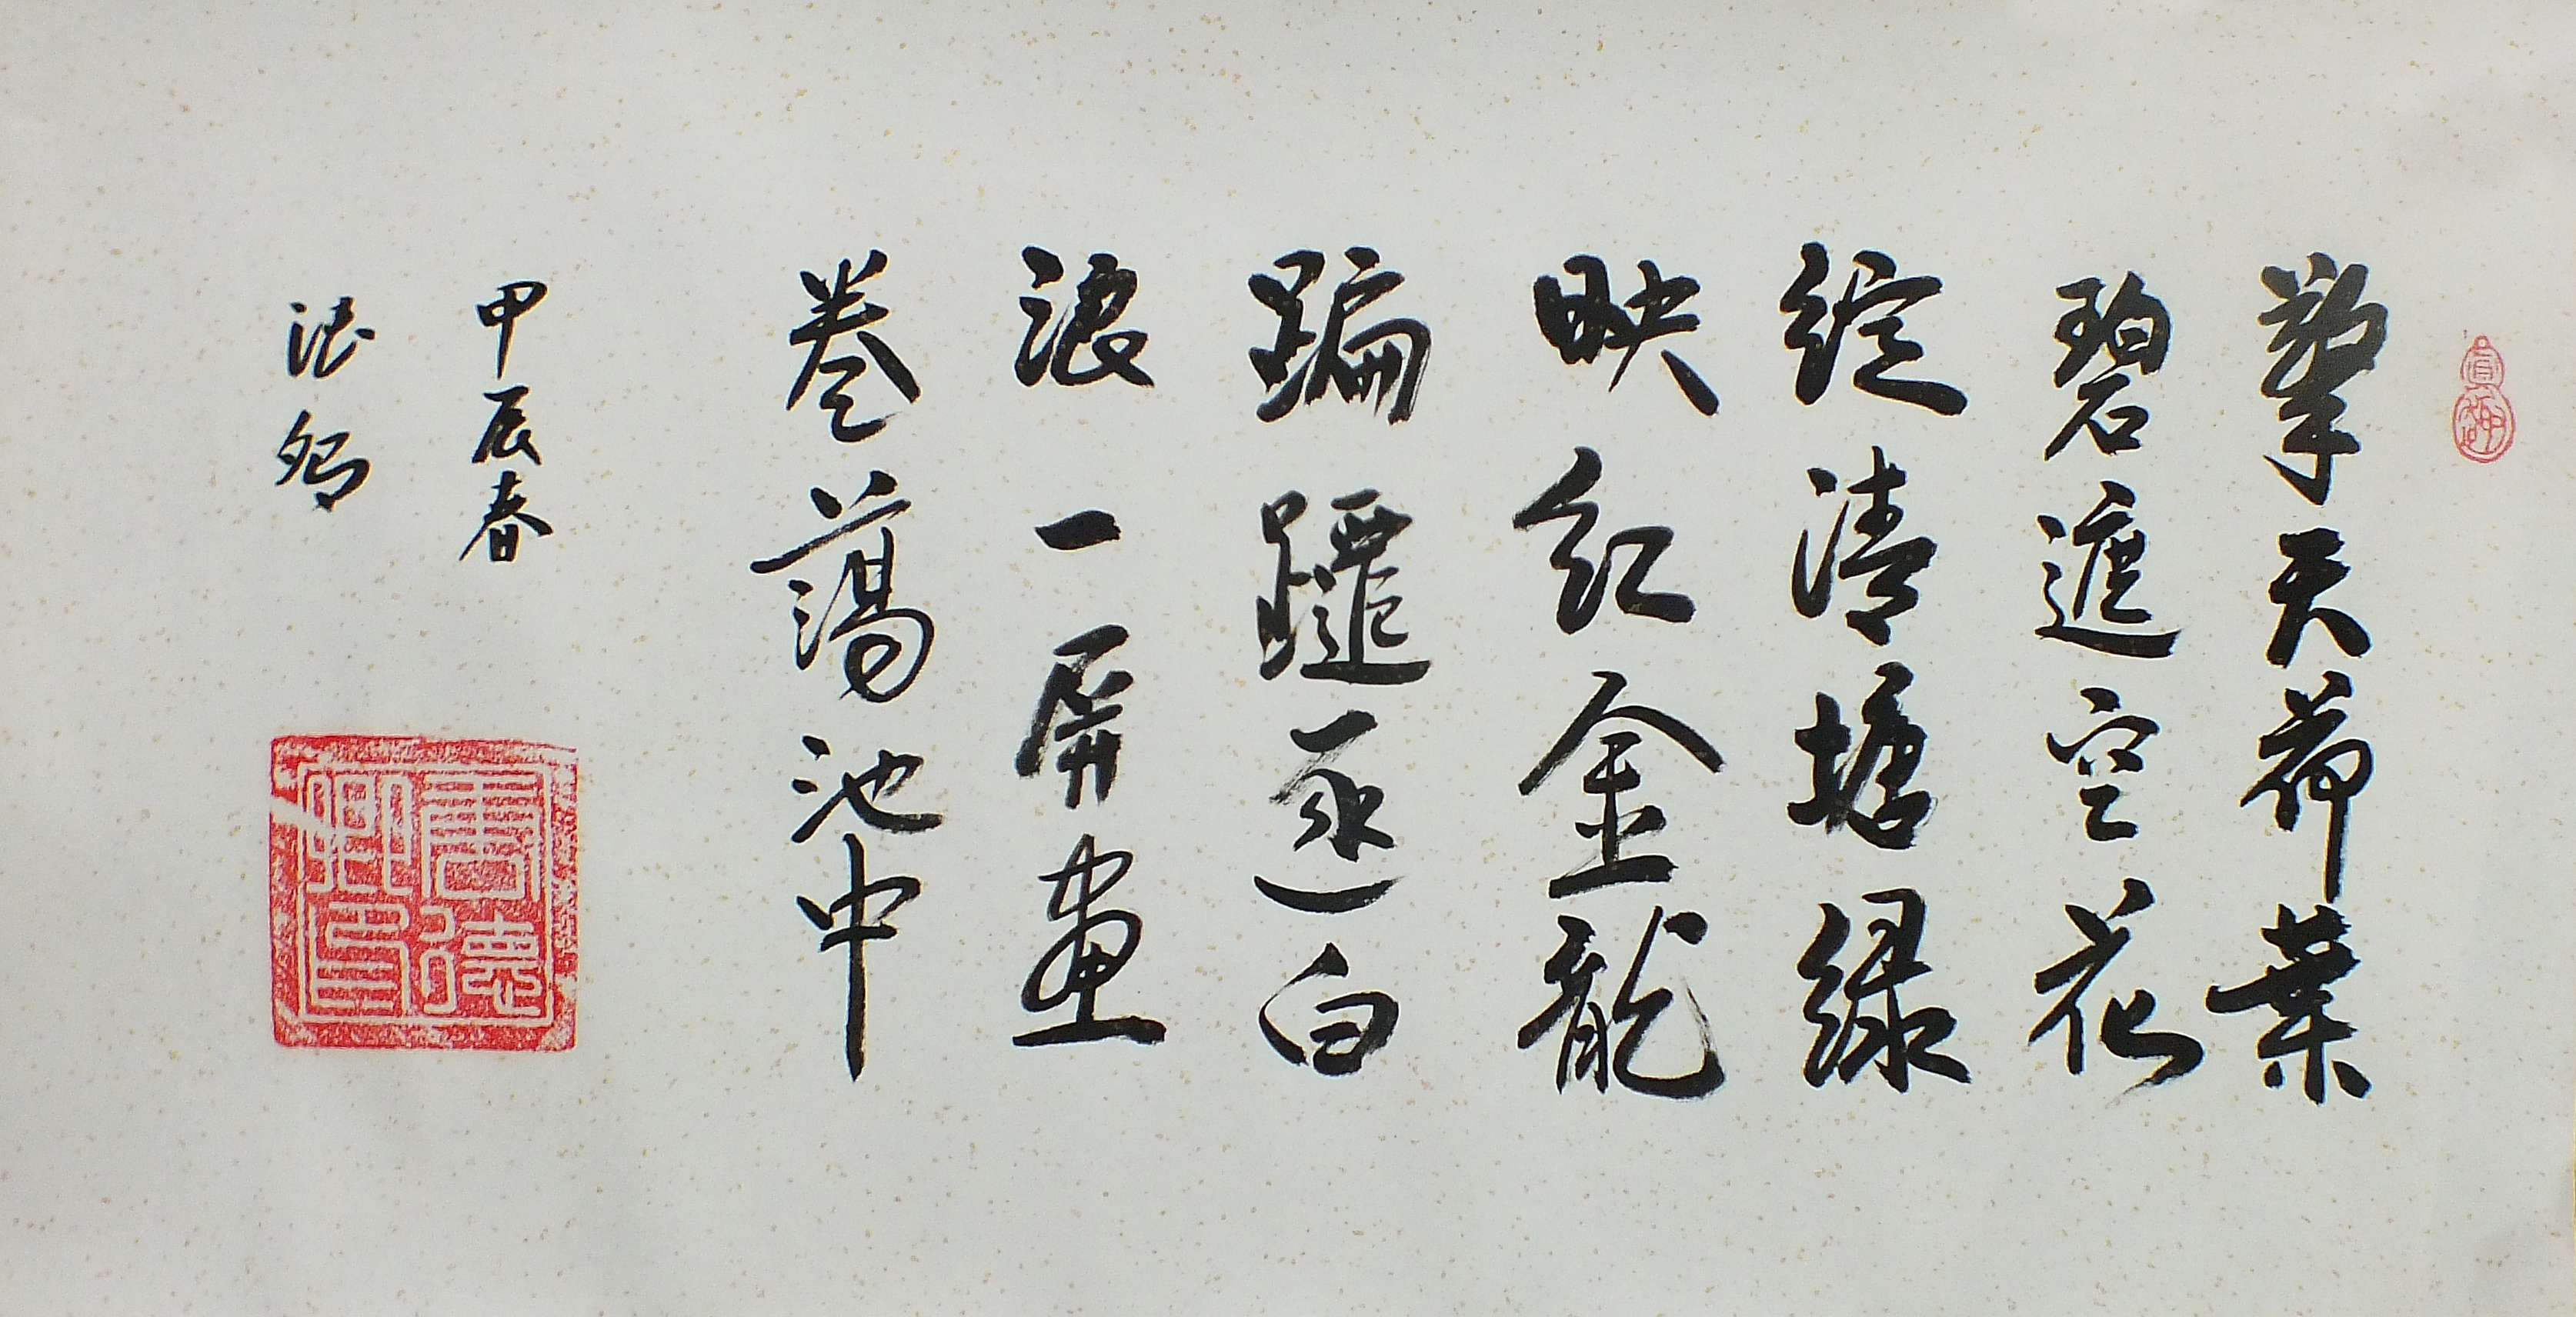 擎天荷葉
碧遮空花
綻清塘綠
映紅金龍
蹁躚逐白
浪一屏畫
卷蕩池中
甲辰春
德卿